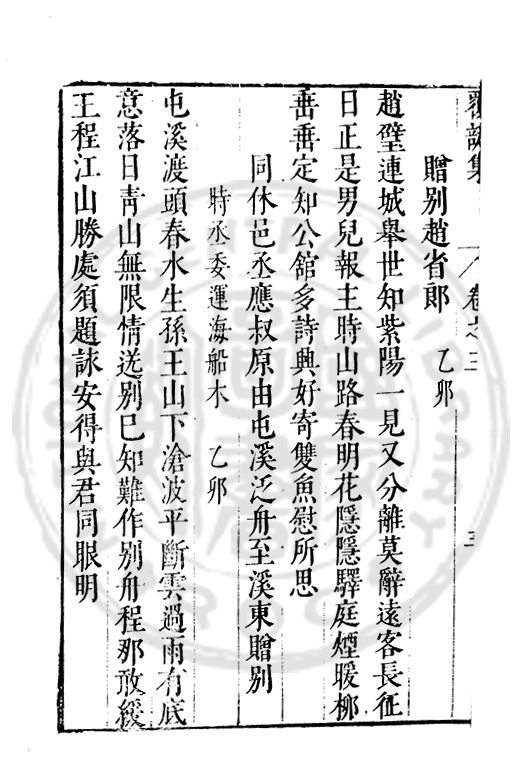 覆瓿集 卷之三 三
贈别趙省郎 乙卯
趙璧連城舉世知紫陽一見又分離莫辭遠客長征
日正是男兒報主時山路春明花隱隱驛庭煙暖栁
垂垂定知公舘多詩興好寄雙魚慰所思
同休邑丞應叔原由屯溪泛舟至溪東贈别
時丞委運海船木 乙卯
屯溪渡頭春水生孫王山下滄波平斷雲過雨有底
意落日青山無限情送别已知難作别舟程那敢緩
王程江山勝處須題詠安得與君同眼明